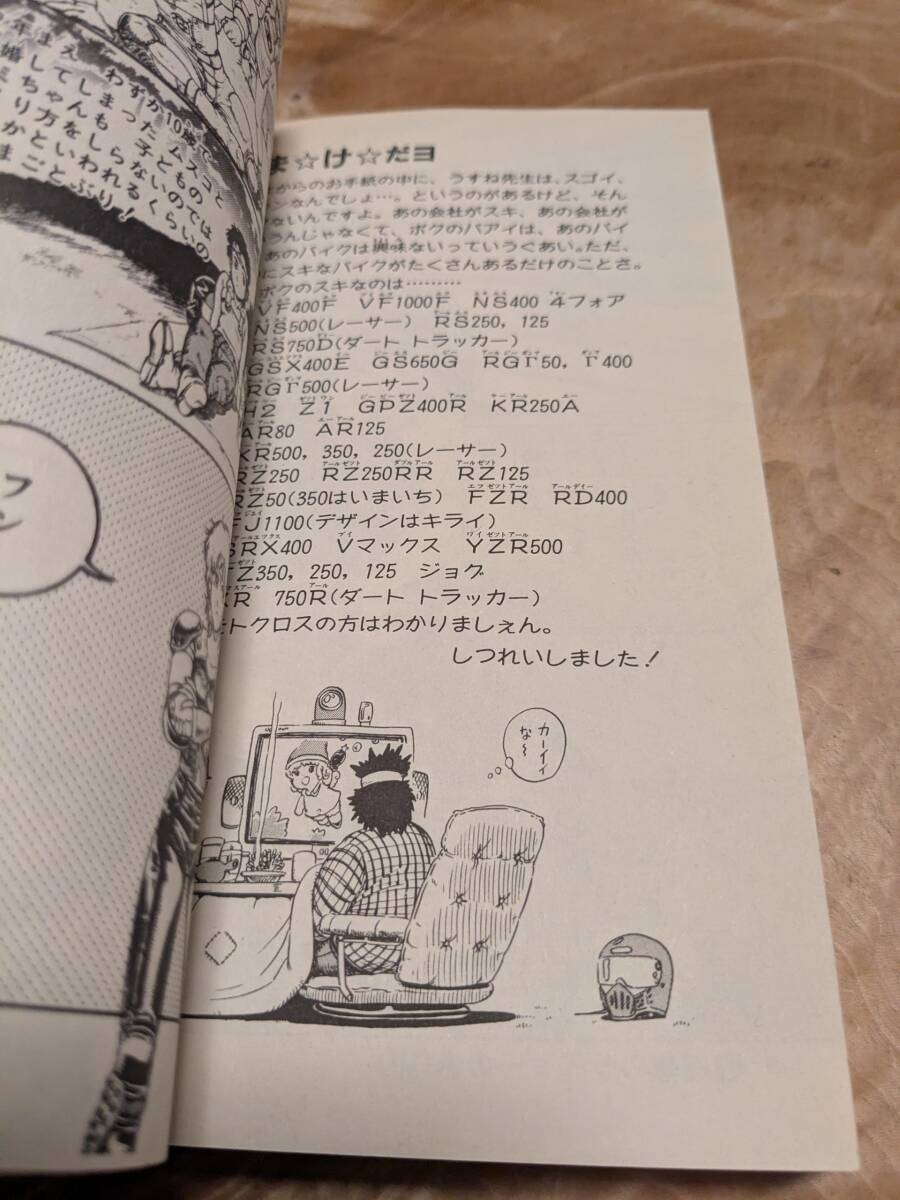 ま☆け☆だヨ
からのお手紙の中に、うすね先生は、スゴイ、
ンなんでしょ…。というのがあるけど、そん
ないんですよ。あの会社がスキ、あの会社が
うんじゃなくて、ボクのバアイは、あのバイ
あのバイクは興味ないっていうぐあい。ただ、
にスキなバイクがたくさんあるだけのことさ。
ボクのスキなのは………
VF400F VF1000F NS400 4フォア
NS500(レーサー) RS250, 125
RS750D(ダート トラッカー)
GSX400E GS650G RGΓ50, Γ400
RGΓ500(レーサー)
H2 Z1 GPZ400R KR250A
AR80 AR125
KR500, 350, 250(レーサー)
RZ250 RZ250RR RZ125
RZ50(350はいまいち) FZR RD400
FJ1100(デザインはキライ)
SRX400 Vマックス YZR500
TZ350, 250, 125 ジョグ
XR 750R(ダート トラッカー)
モトクロスの方はわかりましぇん。
しつれいしました!
カーイイ
な〜
年まえ わずか10歳で
婚してしまったムスコと
ちゃんも 子どもの
り方をしらないのでは
かといわれるくらいの
まごとぶり!
フ